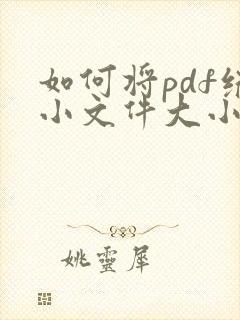 如何将pdf缩
小文件大小
姚灵犀